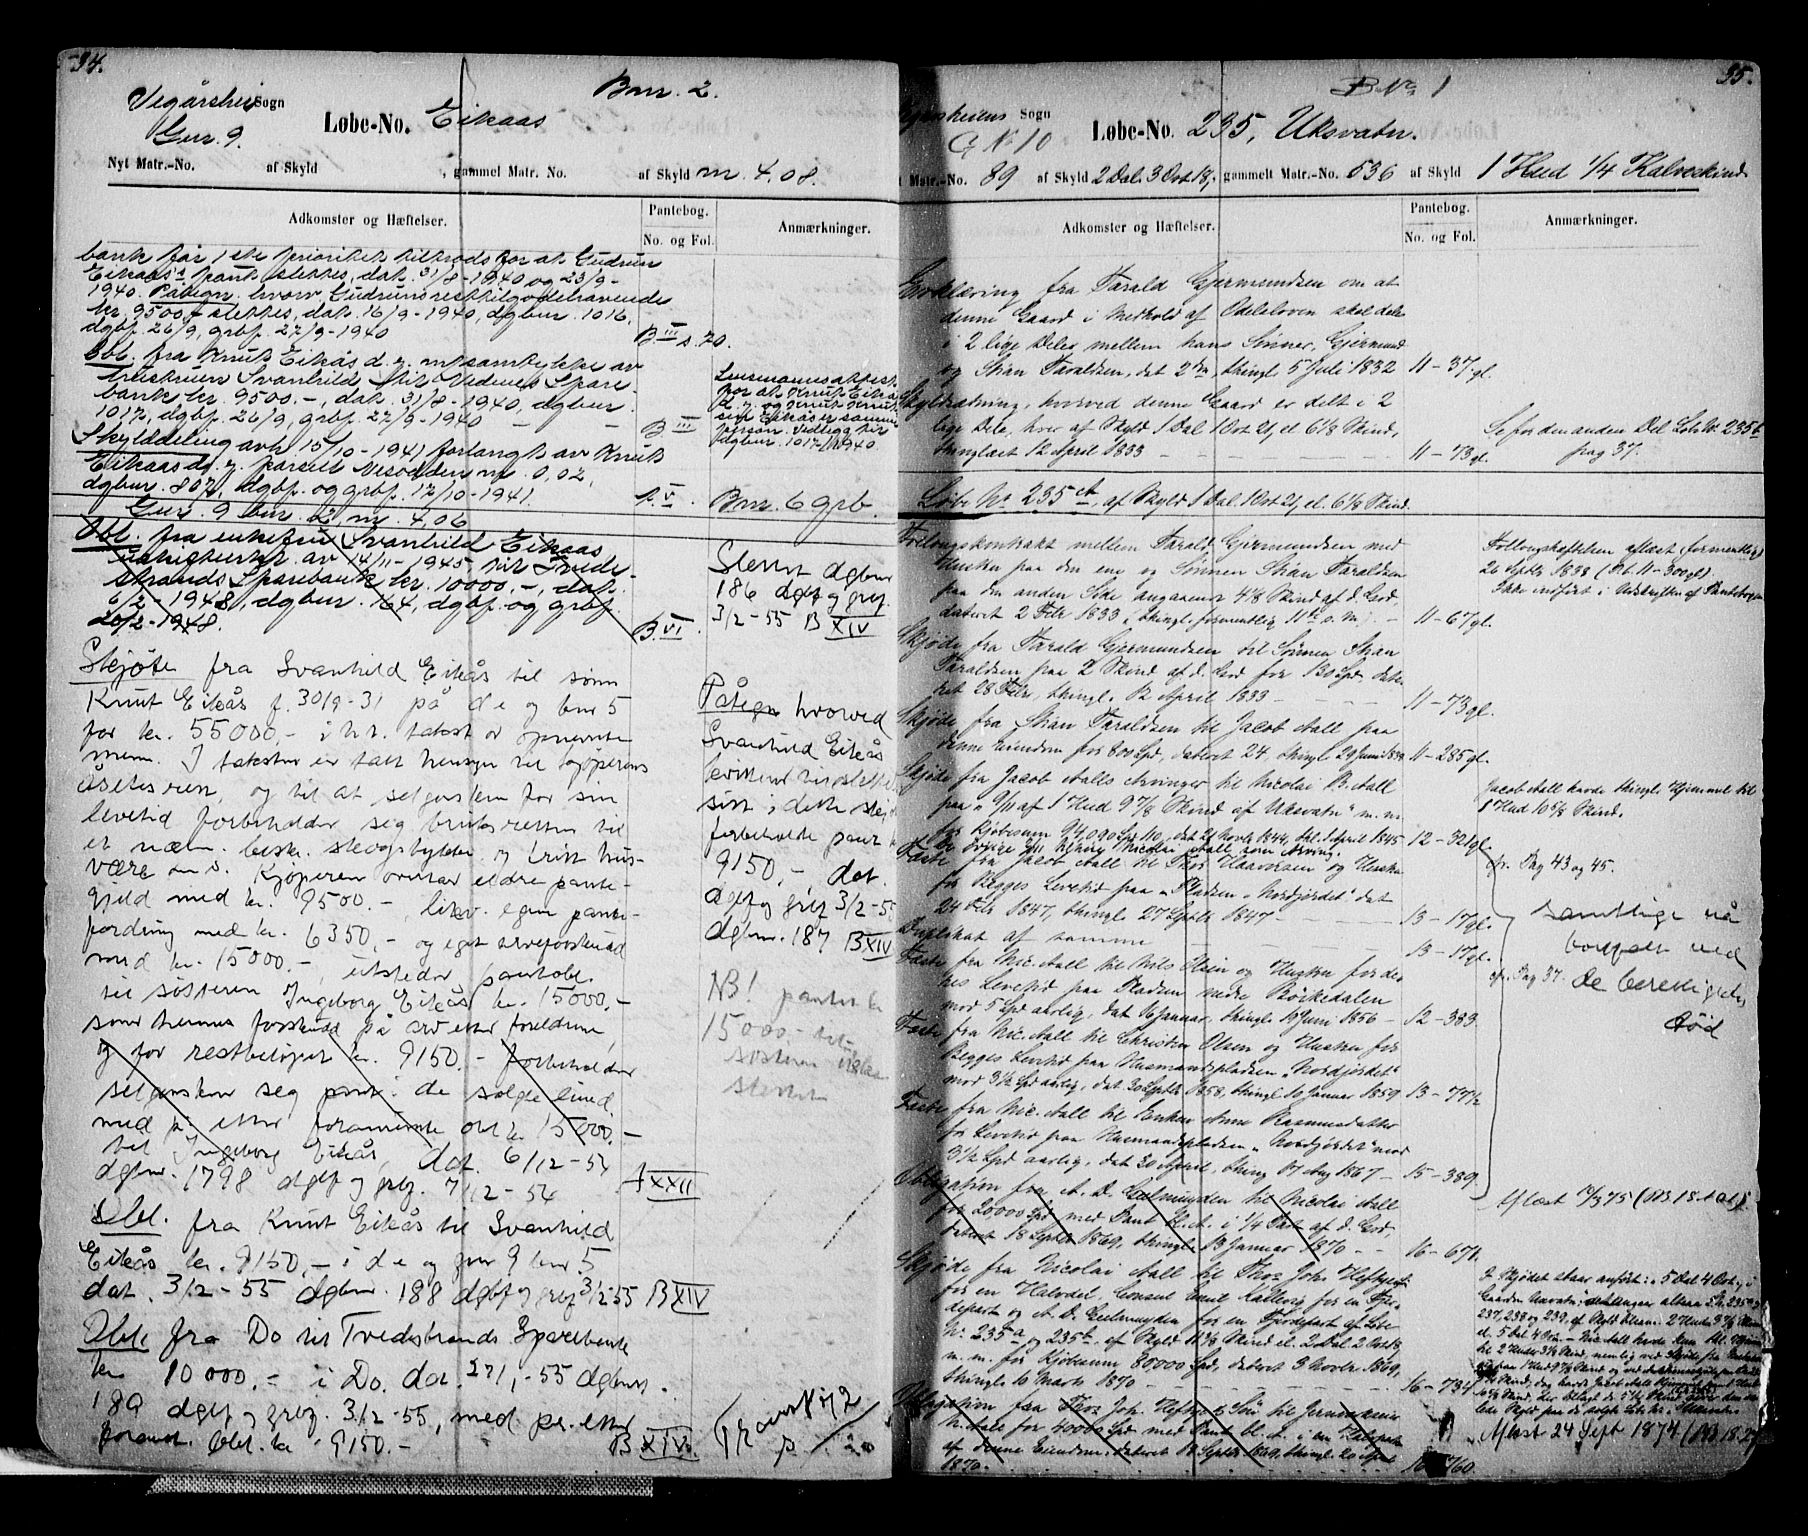 34.
Vegårshei Sogn
Gnr. 9.
Løbe-No. Eikaas
Bnr. 2.
Nyt Matr.-No. af Skyld , gammel Matr. No. af Skyld m. 4.08.
Adkomster og Hæftelser.
Pantebog.
No. og Fol.
Anmærkninger.
bank får 1ste prioritet tiltrods for at Gudrun
Eikaas's pant slettes, dat. 31/8-1940 og 23/9-
1940. Påtegn. hvorv. Gudruns resttilgodehavende
kr. 9500,- slettes, dat. 16/9-1940, dgbnr. 1016,
dgbf. 26/9, grbf. 27/9-1940
B III s. 70.
Obl. fra Knut Eikås d. y. m/samtykke av
hustruen Svanhild til Vedenes Spare-
bank kr. 9500.-, dat. 31/8-1940, dgbnr.
1017, dgbf. 26/9, grbf. 27/9-1940
B III
Lensmannsattest
for at Knut Eikaas
d. y. og Knut Knut-
sen Eikås er samme
person. Vedlegg til
dgbnr. 1017/1940
Skylddeling avh. 15/10-1941 forlangt av Knut
Eikaas d. y. parsell Vesodden m. 0,02,
dgbnr. 807, dgbf. og grbf. 17/10-1941.
p. V.
Bnr. 6 grb.
Gnr. 9 bnr. 2, m. 4,06
Obl. fra enkefru Svanhild Eikaas
av 14/11-1945 til Tvede-
strands Sparebank kr. 10000.-, dat.
6/2-1948, dgbnr. 164, dgbf. og grbf.
20/2-1948.
B. VI
Slettet dgbnr
186 dgbf og grbf
3/2-55 B XIV
Skjøte fra Svanhild Eikås til sønn
Knut Eikås f. 30/9-31 på d e og bnr 5
for kr. 55000,- i h.t. takst av
menn. I taksten er tatt hensyn til kjøperens
åsetesrett, og til at selgersken for sin
levetid forbeholder seg bruksretten til
et nærm. besk. stuogstykke og fritt hus-
være m. v. Kjøperen overtar eldre pante-
gjeld med kr. 9500.-, likv. egen pante-
fordring med kr. 6350,- og eget arveforskudd
med kr. 15000.-, utsteder pantobl.
til søsteren Ingeborg Eikås kr. 15000,-
som hennes forskudd på arv etter foreldrene,
og for restbeløpet kr. 9150.- forbeholder
selgersken seg pant i de solgte eiend.
med pr. etter forannevnte obl kr. 15000.-
til Ingeborg Eikås, dat. 6/12-54
dgbnr. 1798 dgbf og grbf. 7/12-54
A XXII
Påtegn hvorved
Svanhild Eikås
kvitterer
sin i dette skj
forbeholdte pant
9150,-, dat.
dgbf og grbf 3/2-55
dgbnr. 187 B XIV
NB! pantet kr
15000.- til
søsteren
slettet
Obl. fra Knut Eikås til Svanhild
Eikås kr. 9150,- i d e og gnr 9 bnr 5
dat. 3/2-55 dgbnr. 188 dgbf og grbf 3/2-55 B XIV
Obl. fra Do til Tvedestrands Sparebank
kr 10000.- i Do. dat. 27/1-55 dgbnr.
189 dgbf og grbf. 3/2-55, med pr. etter
forannt. obl. kr 9150.-
B XIV
35.
B No 1
Sogn
G No 10
Løbe-No. 235, Uksvatn.
Matr.-No. 89 af Skyld 2 Dal. 3 Ort 18, gammelt Matr.-No. 536 af Skyld 1 Hud 1/4 Kalveskind
Adkomster og Hæftelser.
Pantebog.
No. og Fol.
Anmærkninger.
Erklæring fra Tarald Gjermundsen om at
denne Gaard i Medhold af Odelsloven skal dele
i 2 lige Dele mellem hans Sønner, Gjermund
og Stian Taraldsen, dat 2den, thingl 5 Juli 1832
11-37 gl.
Skyldsætning, hvorved denne Gaard er delt i 2
lige Dele, hver af Skyld 1 Dal 1 Ort 21, el 6 1/8 Skind,
thinglæst 12 April 1833
11-73 gl.
Se for den anden Del Løbe No 235 b
pag 37.
Løbe No 235 a, af Skyld 1 Dal. 1 Ort 21, el. 6 1/8 Skind.
Follougskontrakt mellem Tarald Gjermundsen med
Hustru paa den ene og Sønnen Stian Taraldsen
paa den anden Side angaaende 4 1/8 Skind af d. Grd,
dateret 2 Febr 1833, thingl. formentlig 11te s. M.
11-67 gl.
Follougsheftelsen aflæst (formentlig)
26 Septbr 1838 (Pb. 11-300 gl)
Ikke indført i Udskriften af Pantebogen
Skjøde fra Tarald Gjermundsen til Sønnen Stian
Taraldsen paa 2 Skind af d. Grd for 130 Spd, date-
ret 28 Febr, thingl. 12 April 1833
11-73 gl.
Skjøde fra Stian Taraldsen til Jacob Aall paa
denne Eiendom for 800 Spd, dateret 24, thingl 29 Juni 1839
11-285 gl.
Skjøde fra Jacob Aalls Arvinger til Nicolai B. Aall
paa "9/11 af 1 Hud 9 7/8 Skind af Uksvatn" m. m.
for Kjøbesum 94,090 Spd 110, dat 21 Novbr 1844, thl. 1 April 1845
12-321 gl.
De øvrige tilh Nicolai Aall som Arving.
Jacob Aall havde thingl Hjemmel til
1 Hud 10 5/8 Skind.
Fæste fra Jacob Aall til Thor Haavorsen og Hustru
for Begges Levetid paa "Pladsen Nordjordet" dat
24 Febr 1847, thingl 27 Septbr 1847
13-17 gl.
cfr. Pag 43 og 45.
Duplikat af samme
13-17 gl.
Fæste fra Nic. Aall til Nils Olsen og Hustru for de-
res Levetid paa Pladsen nedre Birkedalen
mod 5 Spd aarlig, dat 16 Januar, thingl. 10 Juni 1856
12-383
cfr. Pag 37.
Fæste fra Nic. Aall til Christen Olsen og Hustru for
Begges Levetid paa Husmandspladsen "Nordjordet"
mod 3 1/2 Spd aarlig, dat 30 Septbr 1858, thingl 10 Januar 1859
13-77 1/2
Fæste fra Nic. Aall til Enken Anne Rasmusdatter
for Levetid paa Husmandspladsen "Nordjordet" mod
3 1/2 Spd aarlig, dat 30 April, thingl 17 Aug 1867
15-389.
samtlige må
bortfalt ved
de berettigedes
død
Obligation fra A. D. Eulmunden til Nicolai Aall
for 20000 Spd med Pant bl. a. i 1/4 Part af d. Grd,
dateret 18 Septbr 1869, thingl 13 Januar 1870
16-671.
Aflæst 17/3 75 (PB 18.
Skjøde fra Nicolai Aall til Thos Joh. Heftye
for en Halvdel, Consul Emil Kallevig for en Fjer-
depart og A. D. Eulmunden for en Fjerdepart af Løbe
No 235 a og 235 b, af Skyld
m. m. for Kjøbesum 80000 Spd, dateret 3 Novbr 1869,
thingl 10 Marts 1870
16-734
I Skjødet staar anført: "5 Dal 4 Ort, i
Obligation fra Thos Joh. Heftye & Søn til
for 40000 Spd med Pant bl. a. i en Halvpart
af denne Eiendom, dateret 18 Septbr 1869, thingl. 20
1870.
760
Aflæst 24 Sept 1874 (PB 18.